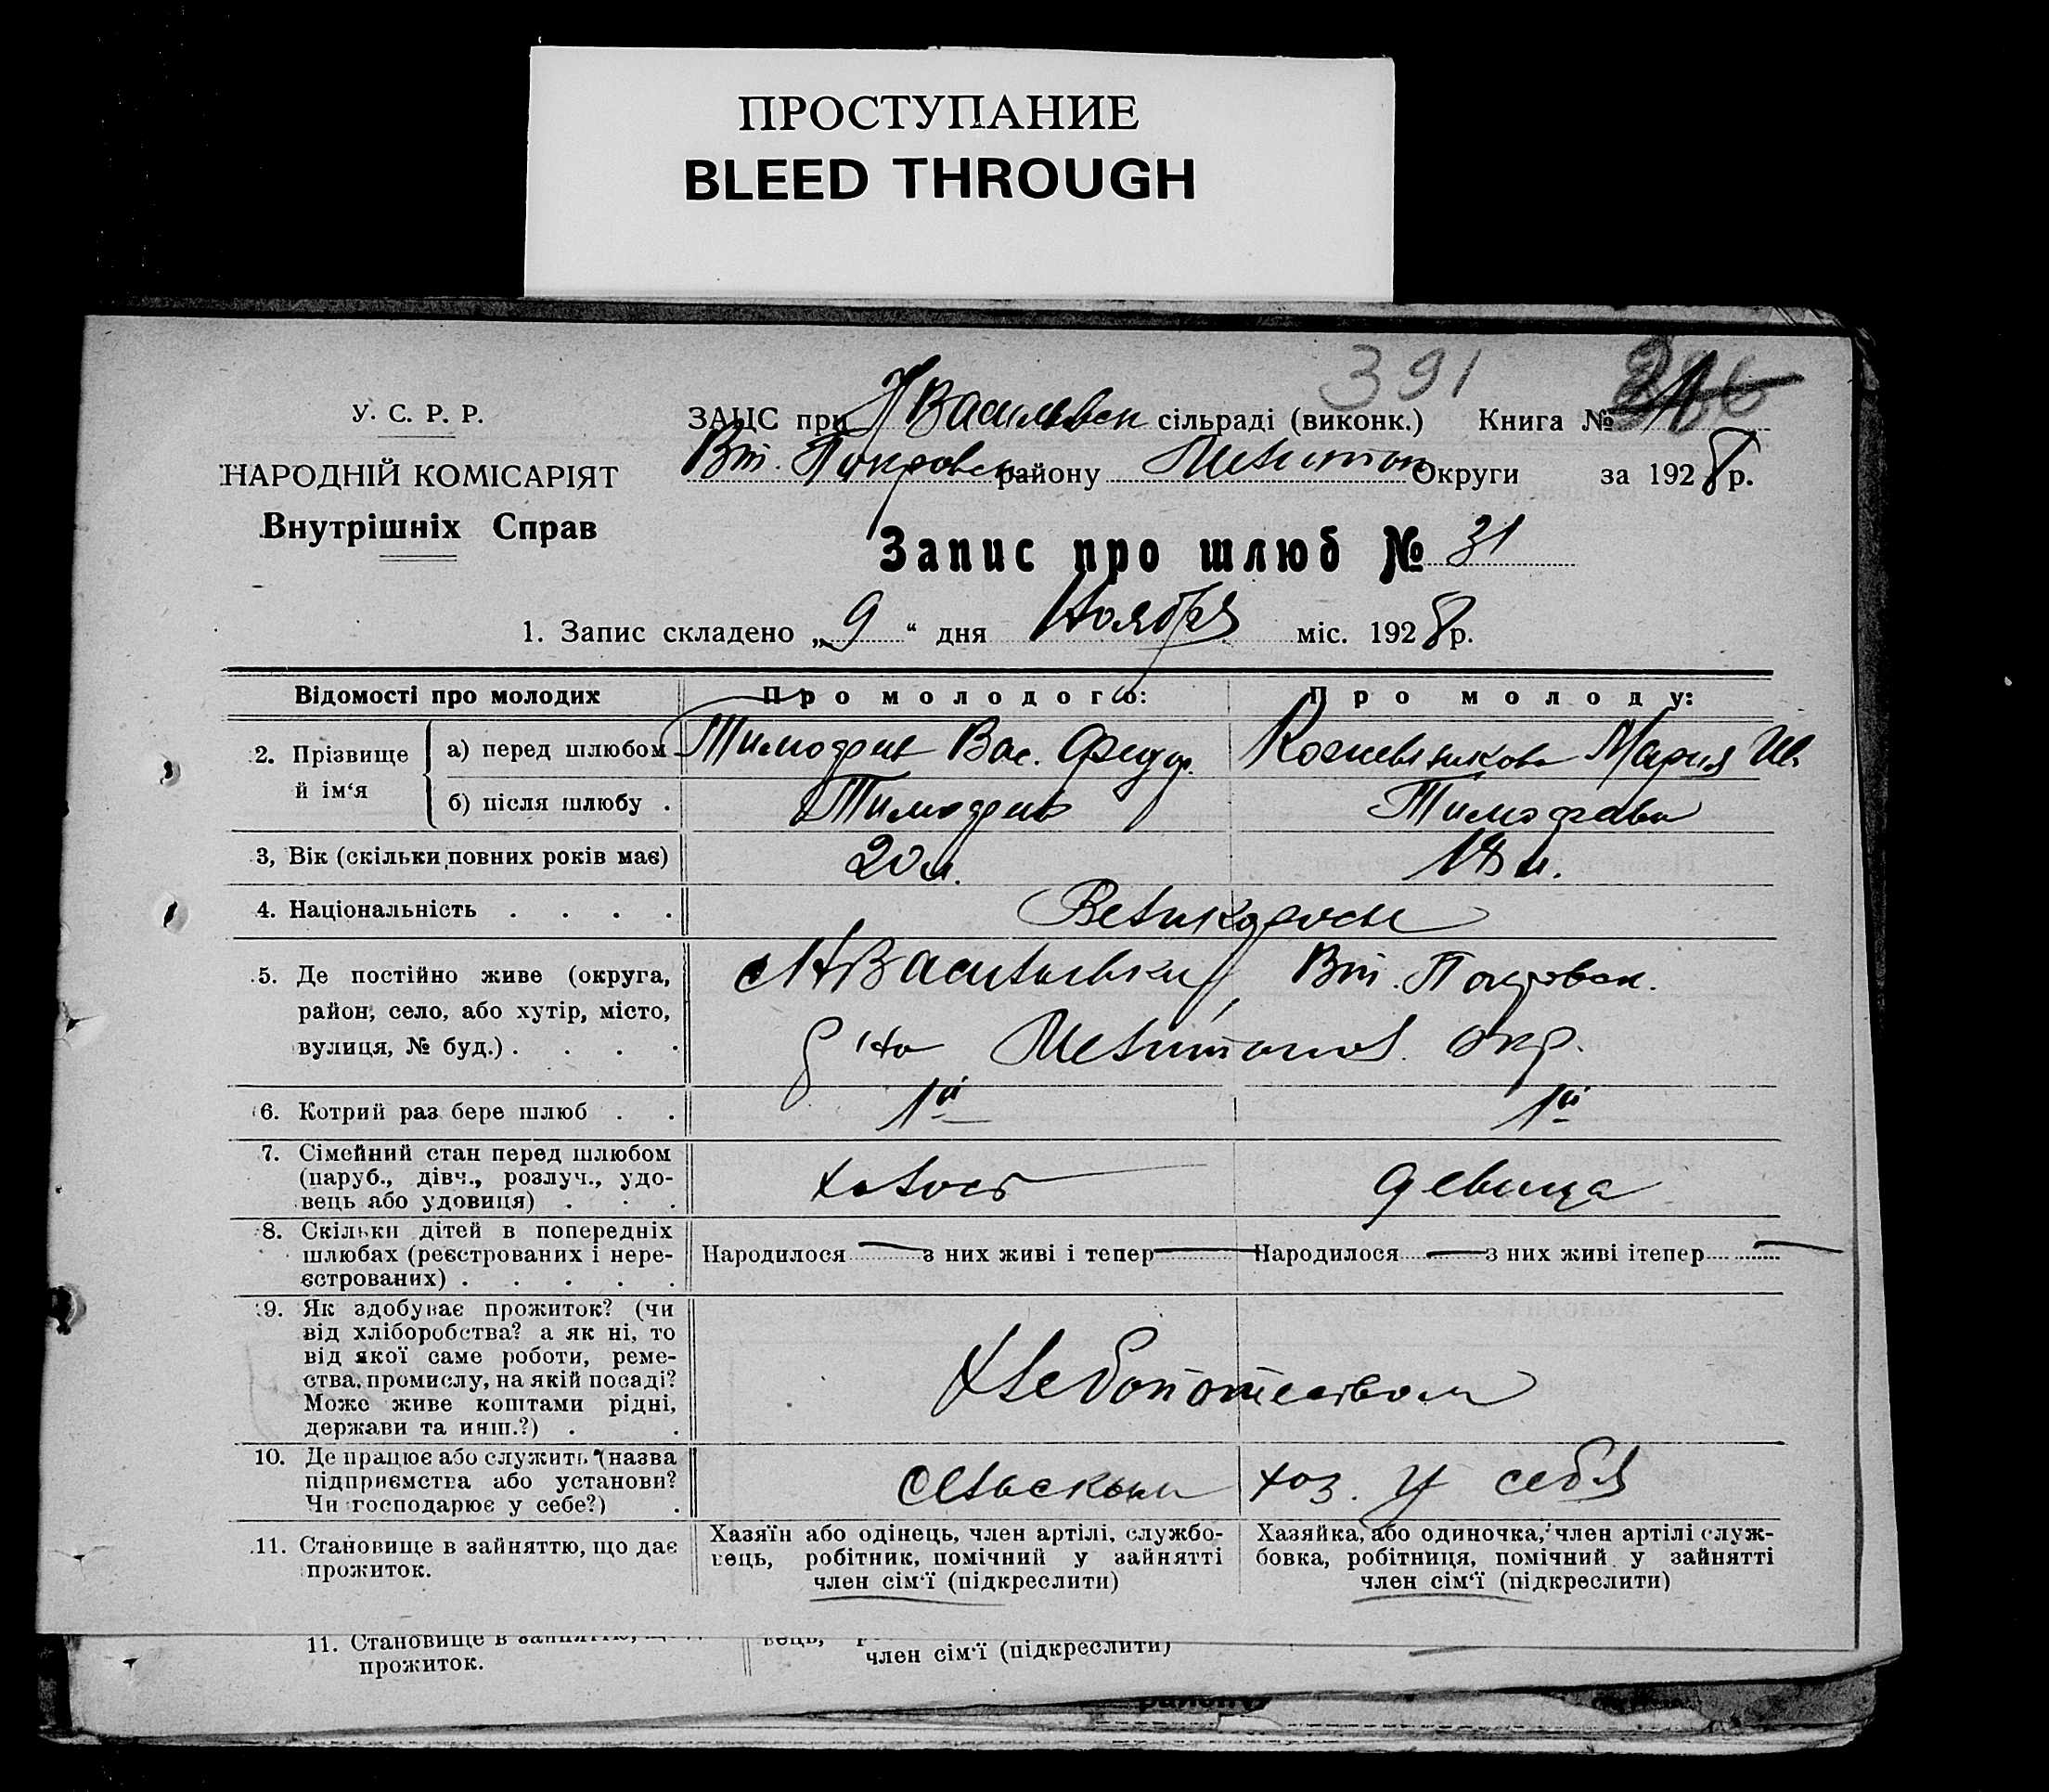 ПРОСТУПАНИЕ
BLEED THROUGH
391
У. С. Р. Р.
НАРОДНІЙ КОМІСАРІЯТ
Внутрішніх Справ
ЗАЦС при НВасильевск сільраді (виконк.) Книга №
Вт. Покровск району Мелитоп Округи за 1928 р.
Запис про шлюб № 31
1. Запис складено „9“ дня Ноября міс. 1928 р.
Відомості про молодих
Про молодого:
Про молоду:
2. Прізвище й ім‘я
а) перед шлюбом
Тимофеев Вас. Федор.
Кожевникова Мария Ив.
б) після шлюбу .
Тимофеев
Тимофеева
3, Вік (скільки повних років має)
20 л.
18 л.
4. Національність . . . .
Великоросы
5. Де постійно живе (округа,
район, село, або хутір, місто,
вулиця, № буд.) . . . .
НВасильевки, Вт. Покровск.
р на Мелитопол. окр.
6. Котрий раз бере шлюб . .
1й
1й
7. Сімейний стан перед шлюбом
(паруб., дівч., розлуч., удо-
вець або удовиця) . . .
холост
девица
8. Скільки дітей в попередніх
шлюбах (реєстрованих і нере-
єстрованих) . . . . .
Народилося — з них живі і тепер —
Народилося — з них живі ітепер —
9. Як здобуває прожиток? (чи
від хліборобства? а як ні, то
від якої саме роботи, реме-
ства, промислу, на якій посаді?
Може живе коштами рідні,
держави та инш.?) . .
Хлебопашеством
10. Де працює або служить (назва
підприємства або установи?
Чи господарює у себе?) .
сельским хоз. у себя
11. Становище в зайняттю, що дає
прожиток.
Хазяїн або одінець, член артілі, службо-
вець, робітник, помічний у зайнятті
член сім‘ї (підкреслити)
Хазяйка, або одиночка, член артілі служ-
бовка, робітниця, помічний у зайнятті
член сім‘ї (підкреслити)
11. Становище в
прожиток.
член сім‘ї (підкреслити)